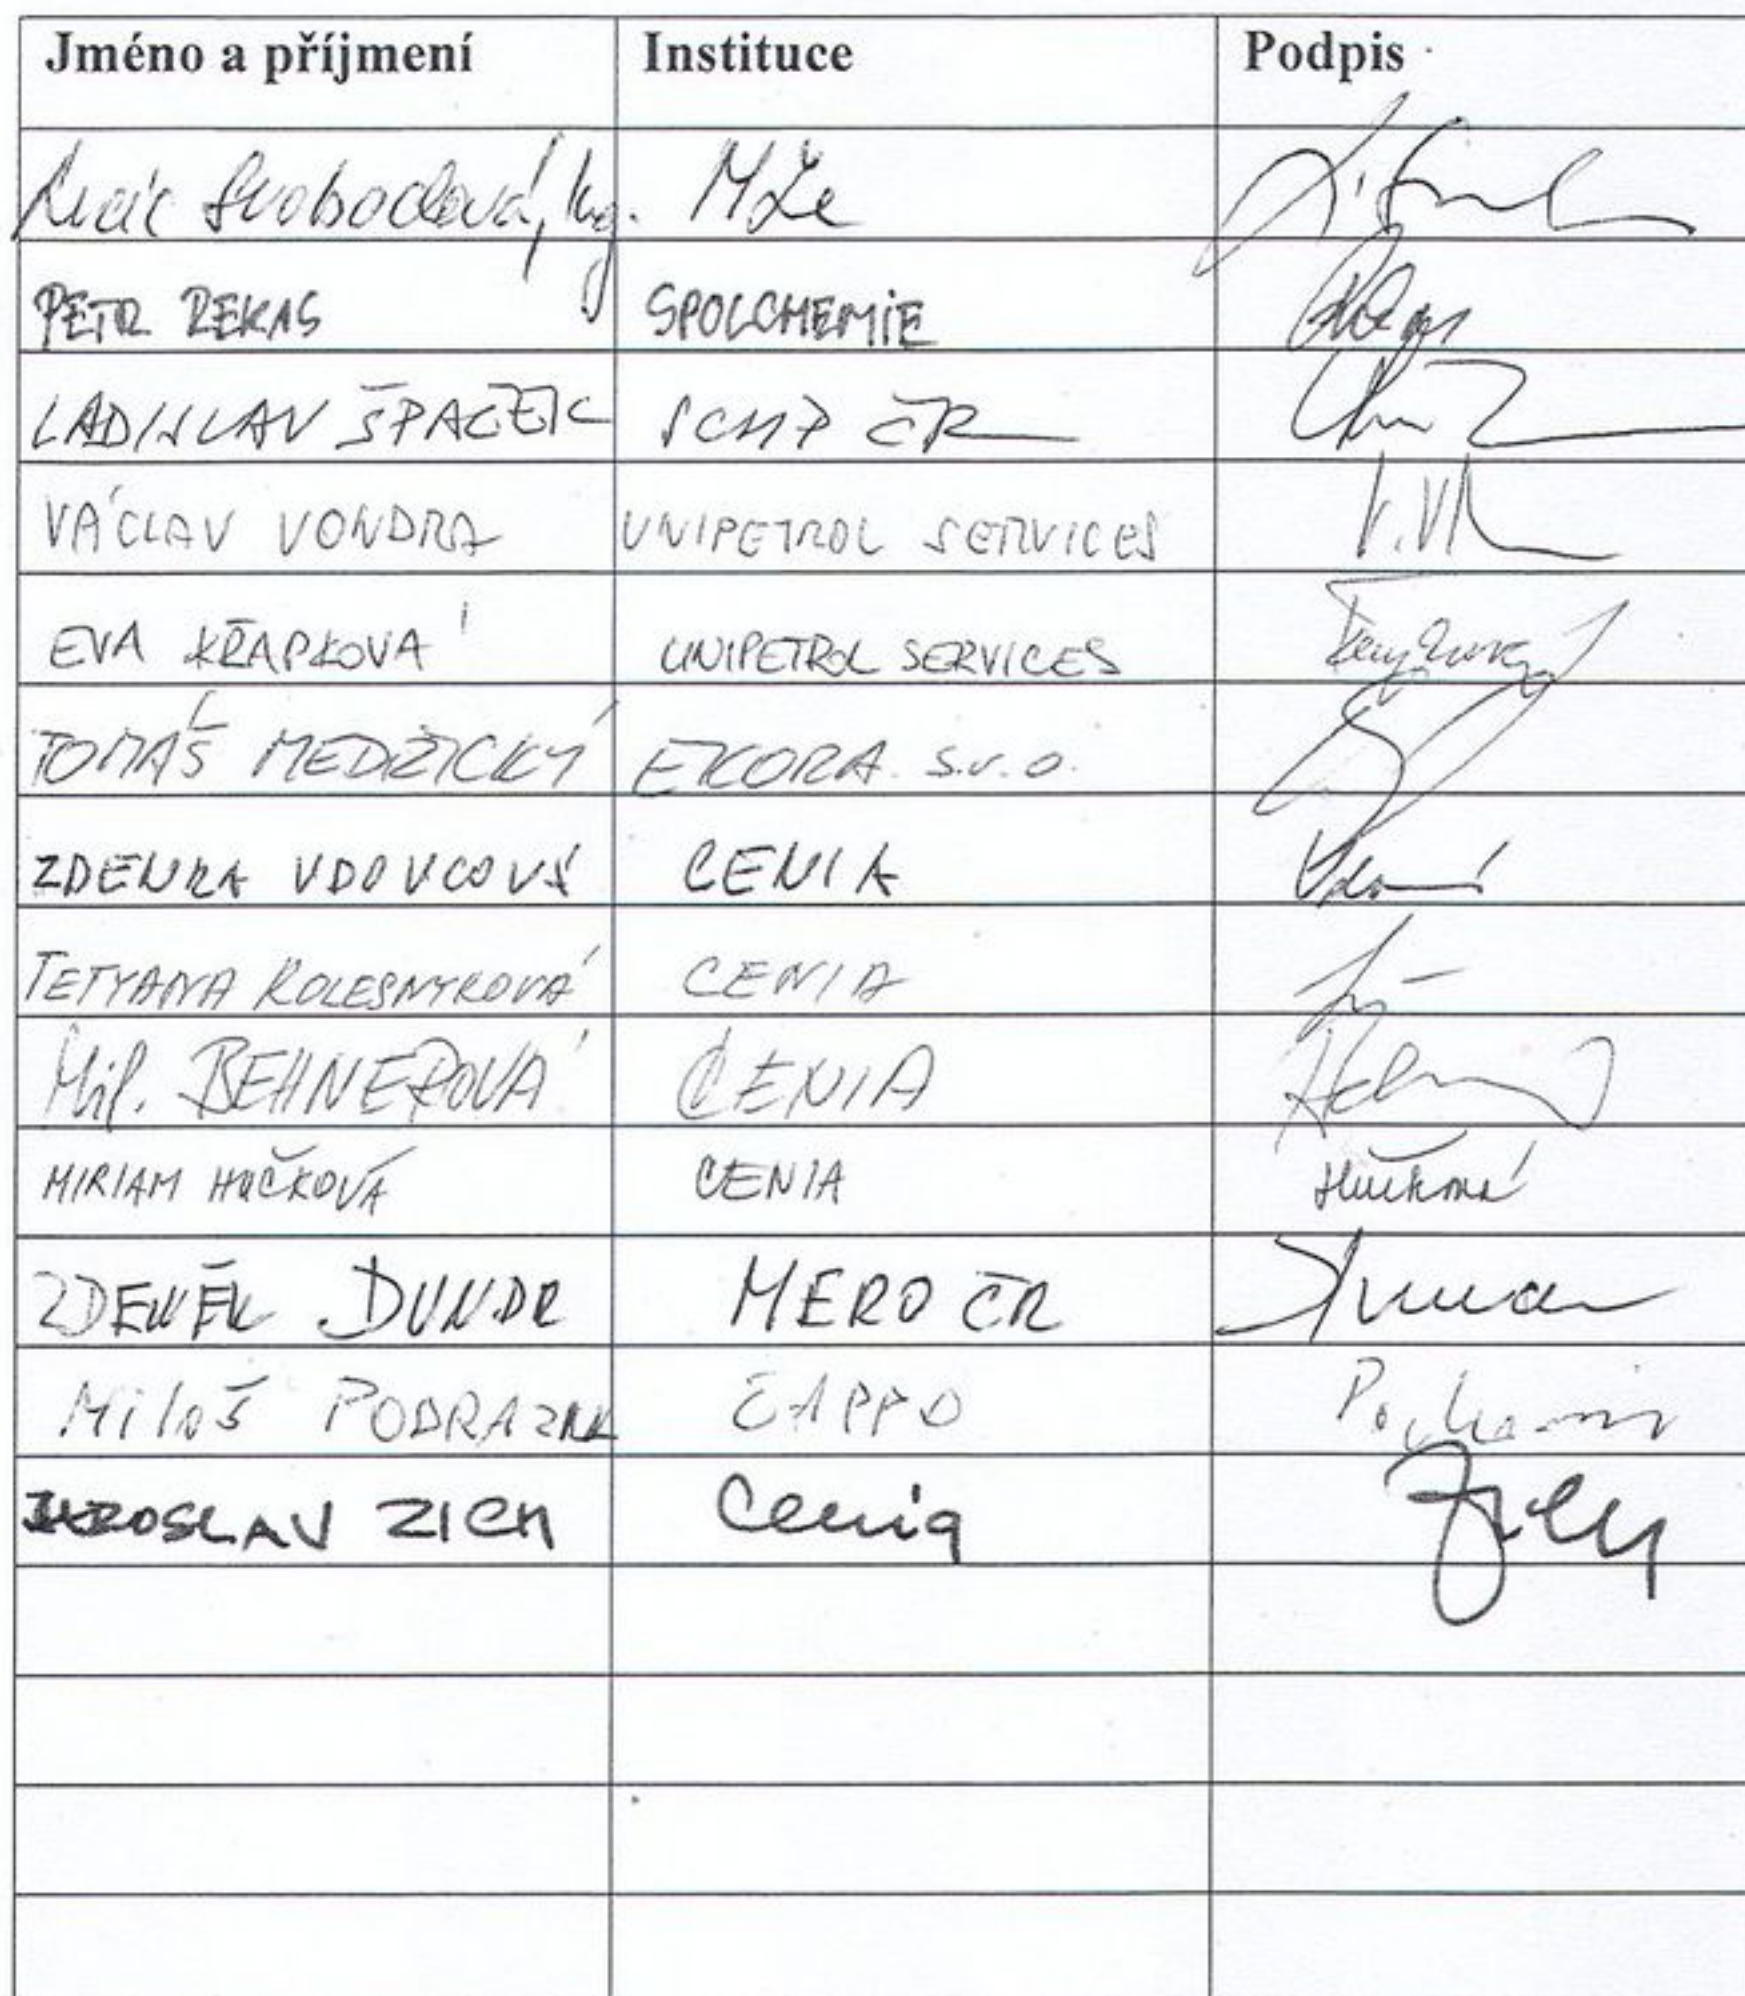 Jméno a příjmení Instituce Podpis
Lucie Svobodová, Ing. MZe
PETR REKAS SPOLCHEMIE
LADISLAV ŠPAČEK SCHP ČR
VÁCLAV VONDRA UNIPETROL SERVICES V.V
EVA KŘAPKOVÁ UNIPETROL SERVICES
TOMÁŠ MEDŘICKÝ EKORA s.r.o.
ZDENKA VDOVCOVÁ CENIA
TETYANA KOLESNYKOVÁ CENIA
Mil. BEHNEROVÁ CENIA
MIRIAM HUČKOVÁ CENIA Hučková
ZDENĚK DUNDR MERO ČR
Miloš PODRAZIL ČAPPO
JAROSLAV ZICH Cenia